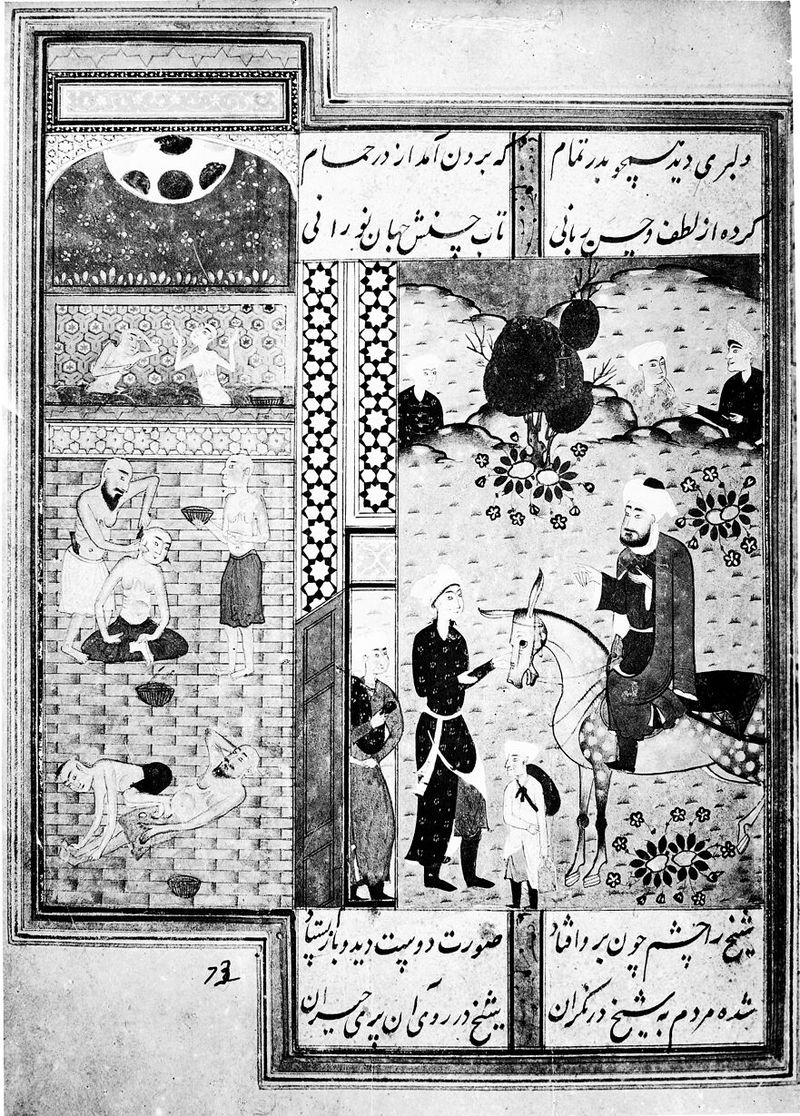 دلبری دید همچو بدر تمام که برون آمد از در حمام
کرده از لطف و حسن ربانی تاب حسنش جهان نورانی
شیخ را چشم چون برو افتاد صورت دوست دید و باز استاد
شده مردم به شیخ در نگران شیخ در روی آن پری حیران
73